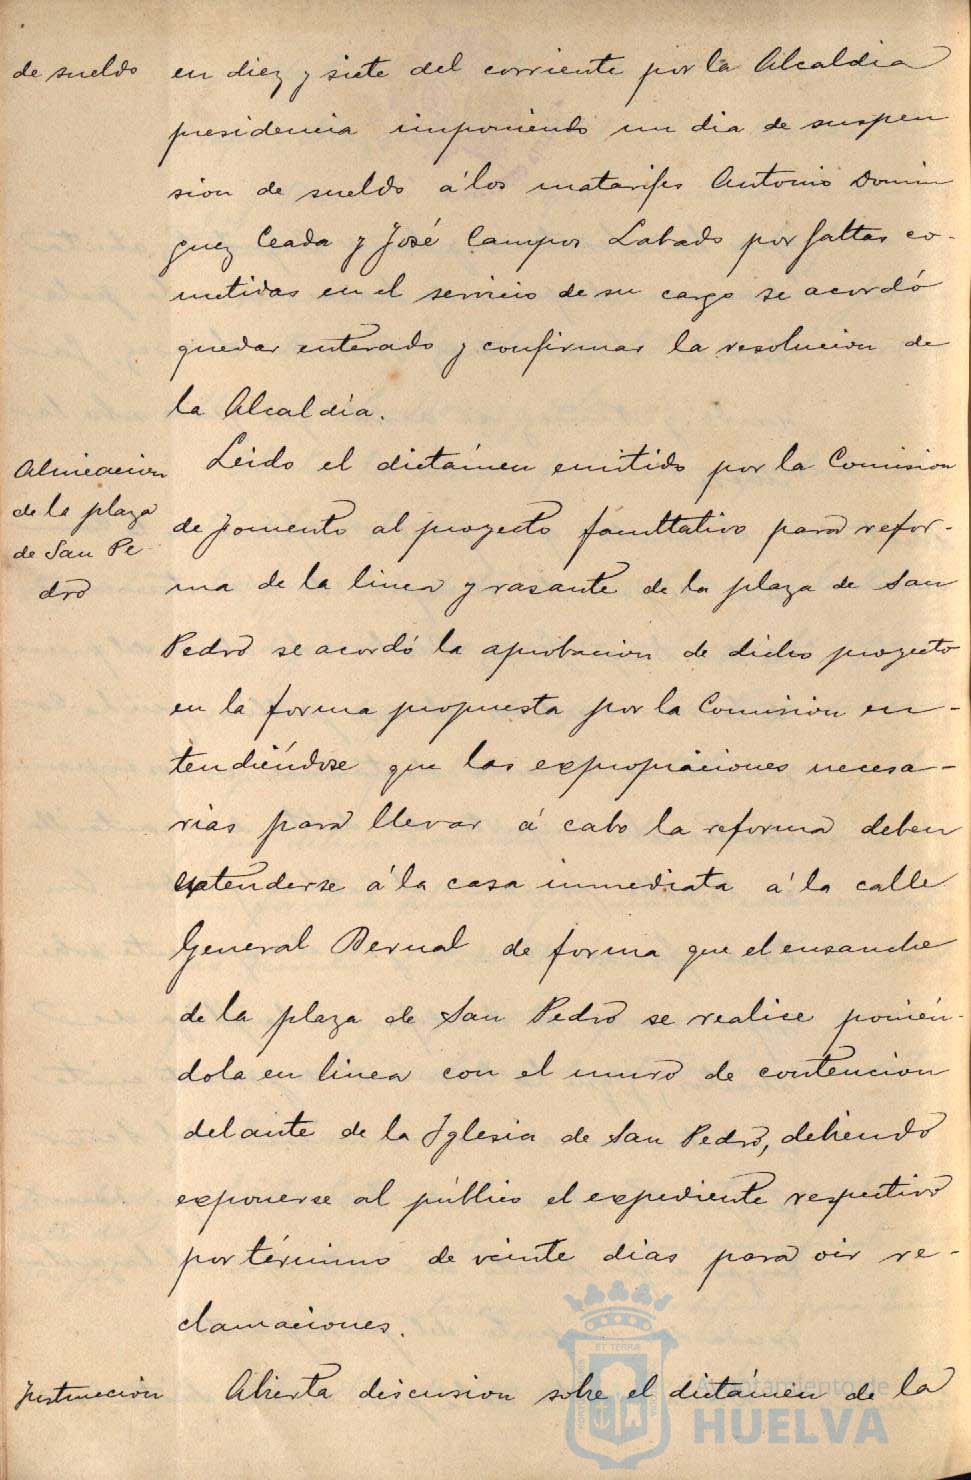 de sueldo
en diez y siete del corriente por la Alcaldia
presidencia imponiendo un dia de suspen
sion de sueldo á los matarifes Antonio Domin
guez Ceada y José Campos Labado por faltas co-
metidas en el servicio de su cargo se acordó
quedar enterado y confirmar la resolucion de
la Alcaldia.
Alineacion
de la plaza
de San Pe
dro
Leido el dictámen emitido por la Comision
de fomento al proyecto facultativo para refor-
ma de la linea y rasante de la plaza de San
Pedro se acordó la aprobacion de dicho proyecto
en la forma propuesta por la Comision en-
tendiéndose que las expropiaciones necesa-
rias para llevar á cabo la reforma deben
extenderse á la casa inmediata á la calle
General Bernal de forma que el ensanche
de la plaza de San Pedro se realice ponién-
dola en linea con el muro de contencion
delante de la Iglesia de San Pedro, debiendo
exponerse al público el expediente respectivo
por término de veinte dias para oir re-
clamaciones.
Instruccion
Abierta discusion sobre el dictámen de la
ET TERRÆ
Ayuntamiento de
HUELVA